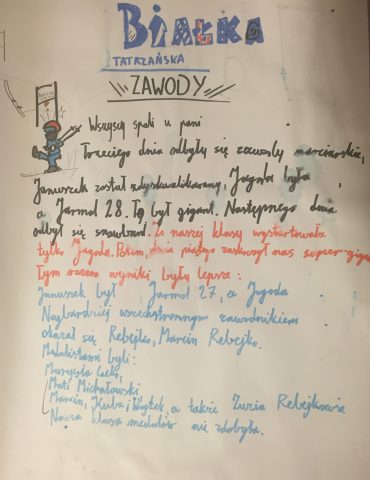 BIAŁKA
TATRZAŃSKA
ZAWODY
Wszyscy spali u pani
Trzeciego dnia odbyły się zawody narciarskie,
Januszek został zdyskwalifikowany, Jagoda była
a Jarmol 28. To był gigant. Następnego dnia
odbył się snowband. Z naszej klasy wystartowała
tylko Jagoda. Potem, dnia piątego zaskoczył nas super gigant
Tym razem wyniki były lepsze:
Januszek był Jarmol 27, a Jagoda
Najbardziej wszechstronnym zawodnikiem
okazał się Rebejko, Marcin Rebejko.
Medalistami byli:
Marysia
Mati Michałowski
Marcin, Kuba i Wojtek, a także Zuzia
Nasza klasa medalów nie zdobyła.